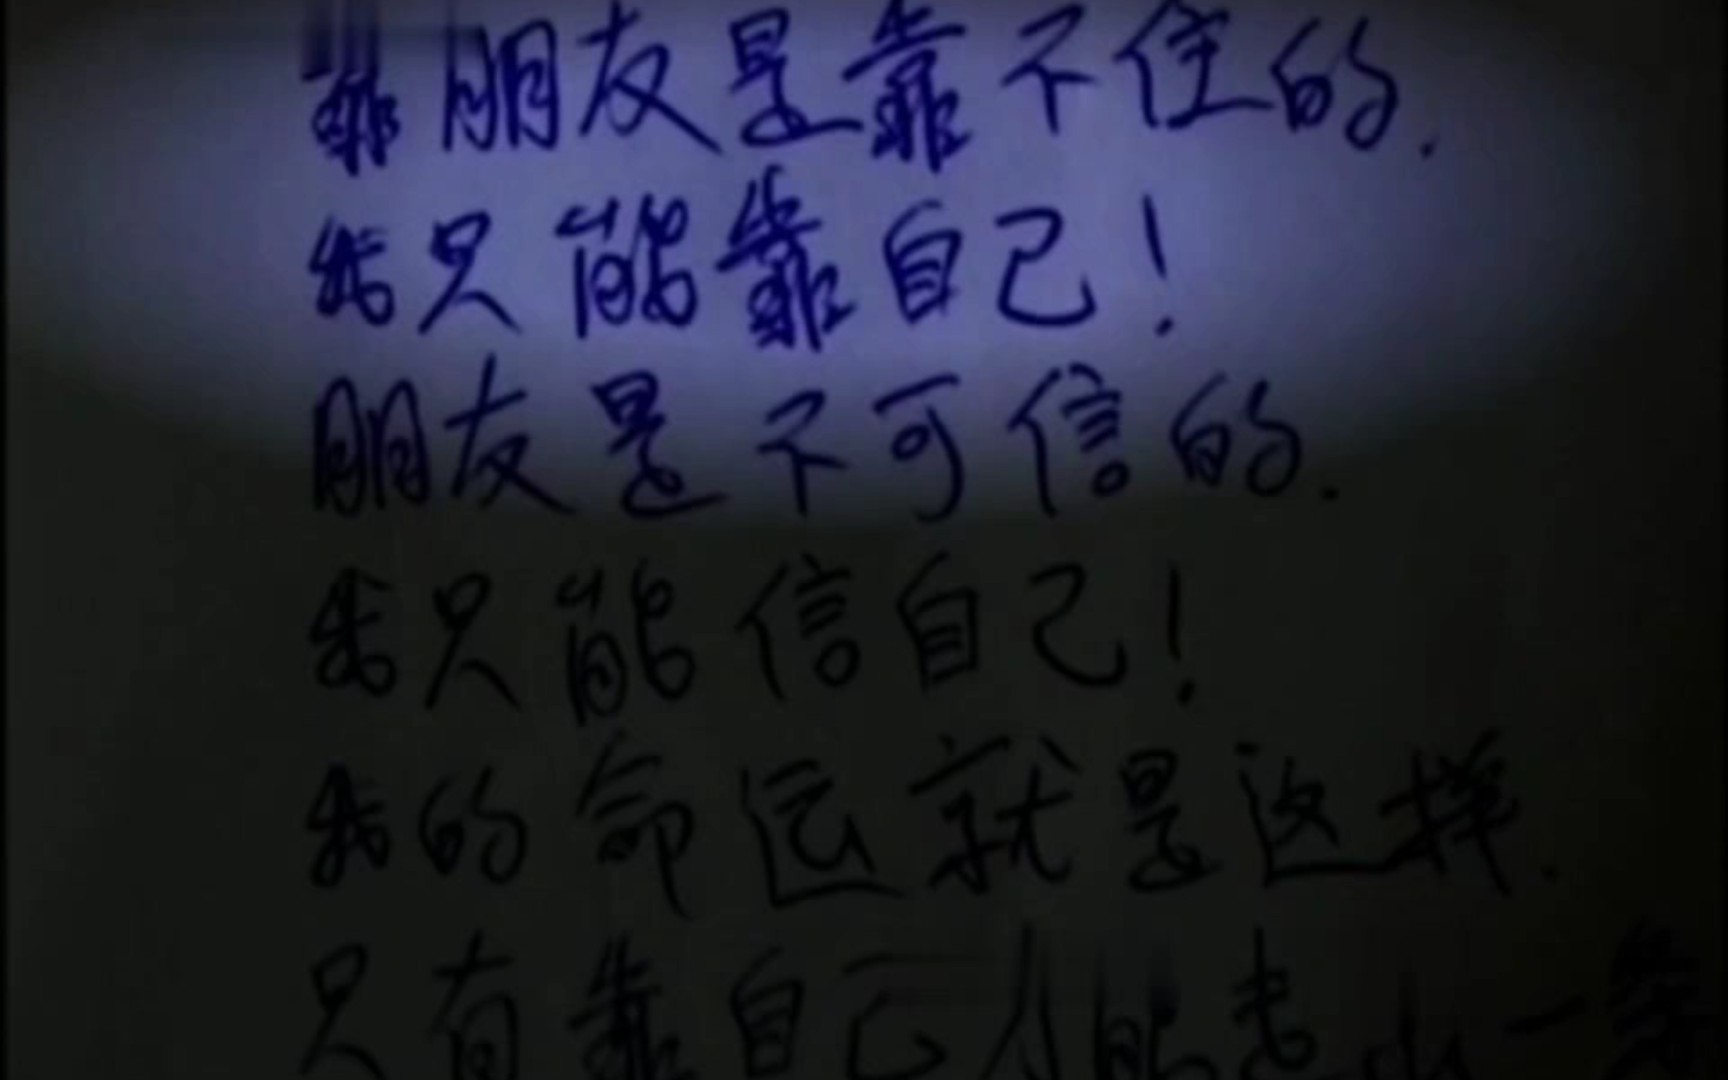 靠朋友是靠不住的.
我只能靠自己!
朋友是不可信的.
我只能信自己!
我的命运就是这样.
只有靠自己才能走出一条